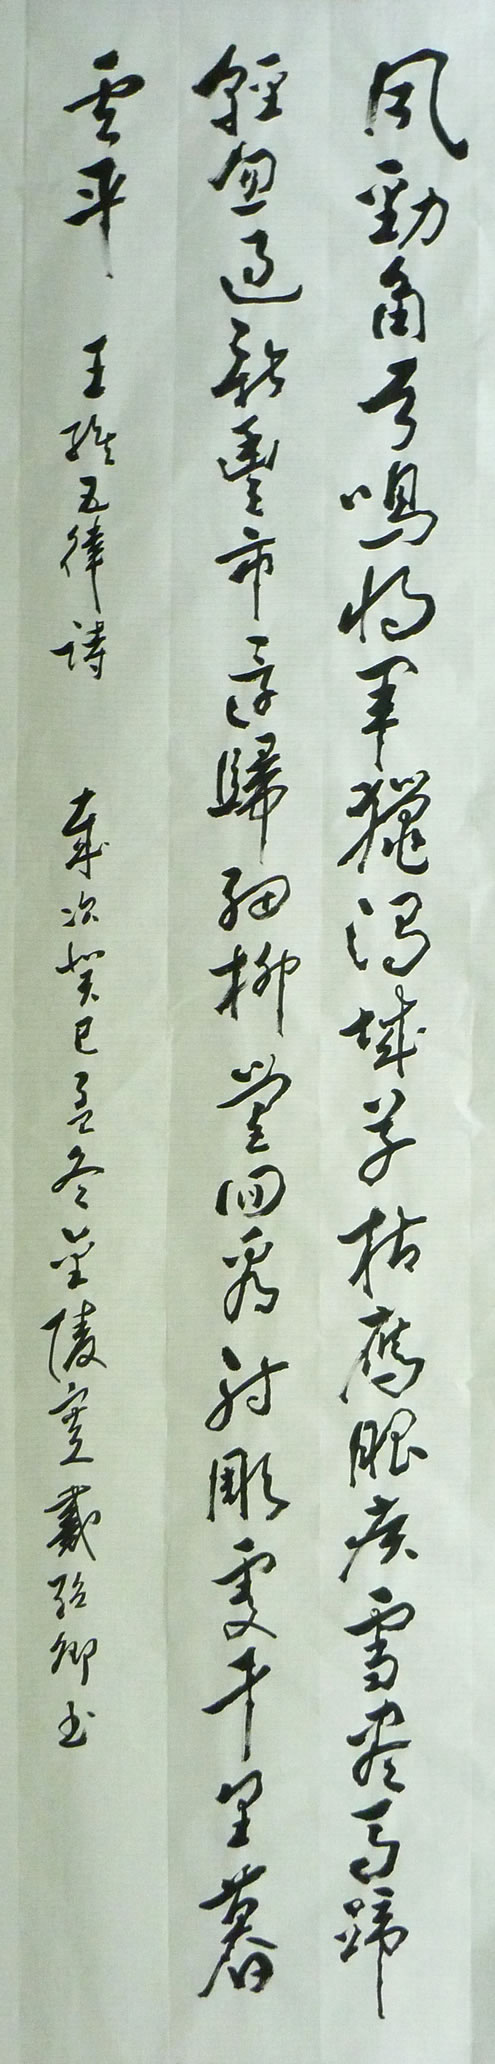 風勁角弓鳴將軍獵渭城草枯鷹眼疾雪盡馬蹄
輕忽過新豐市還歸細柳營回看射彫處千里暮
雲平 王維五律詩 歲次癸巳孟冬金陵戴卿书